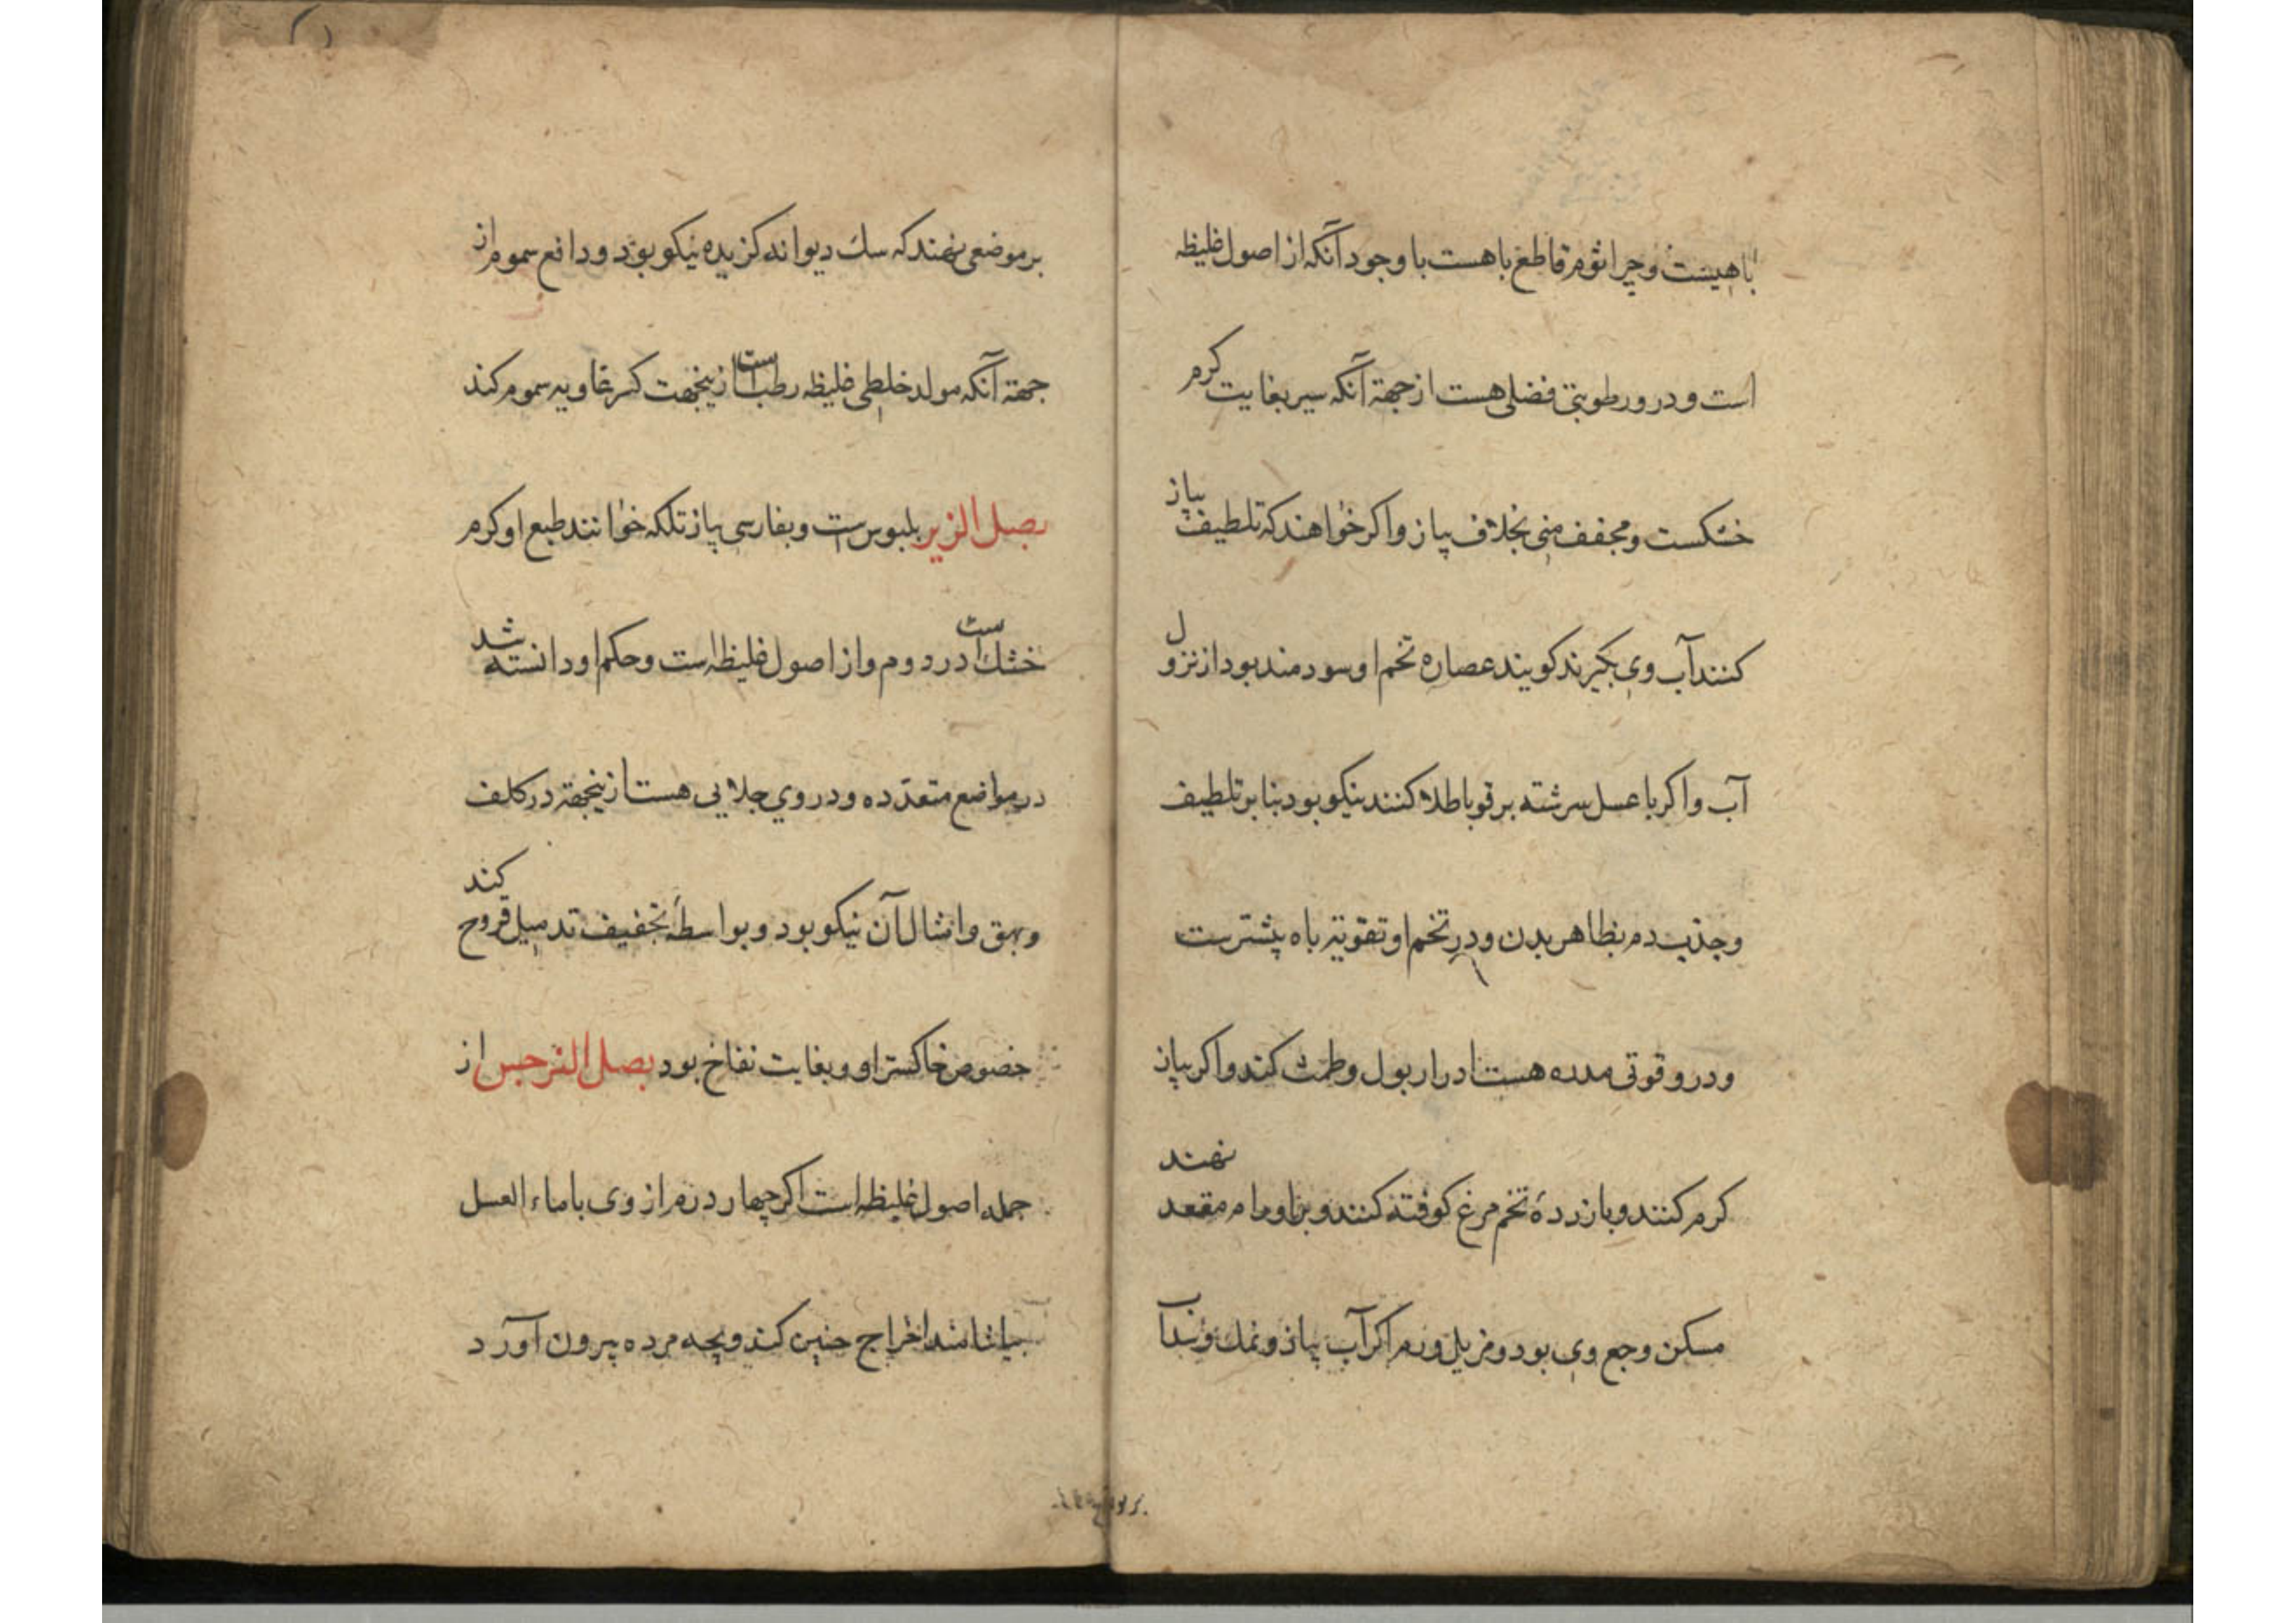 باهیست وچرا ثوم قاطع باهست با وجود آنکه از اصول غلیظه
است و درو رطوبتی فضلی هست از جهة آنکه سیر بغایت کرم
خشکست و مجفف منی بخلاف پیاز و اکر خواهند که تلطیف پیاز
کنند آب وی بکیرند کویند عصاره تخم او سودمند بود از نزول
آب و اکر با عسل سرشته بر قوبا طلا کنند نیکو بود بنا بر تلطیف
و جذب دم بظاهر بدن و در تخم او تقویة باه بیشترست
و درو قوتی مدره هست ادرار بول و طمث کند و اکر پیاز
کرم کنند و با زردهٔ تخم مرغ کوفته کنند و بر اورام مقعد نهند
مسکن وجع وی بود و مزیل ورم اکر آب پیاز و نمک و سداب
بر موضعی نهند که سک دیوانه کزیده نیکو بود و دافع سموم از
جهة آنکه مولد خلطی غلیظه رطب است ازینجهت کسر غاویه سموم کند
بصل الزیر بلبوس است و بفارسی پیاز تلکه خوانند طبع او کرم
خشک است در دوم و از اصول غلیظه است و حکم او دانسته شد
در مواضع متعدده و در وی جلایی هست ازینجهة در کلف
و بهق و امثال آن نیکو بود و بواسطهٔ تجفیف تدمیل قروح کند
خصوص خاکستر او و بغایت نفاخ بود بصل النرجس از
جمله اصول غلیظه است اکر چهار درم از وی با ماء العسل
بیاشامند اخراج جنین کند و بچه مرده بیرون آورد